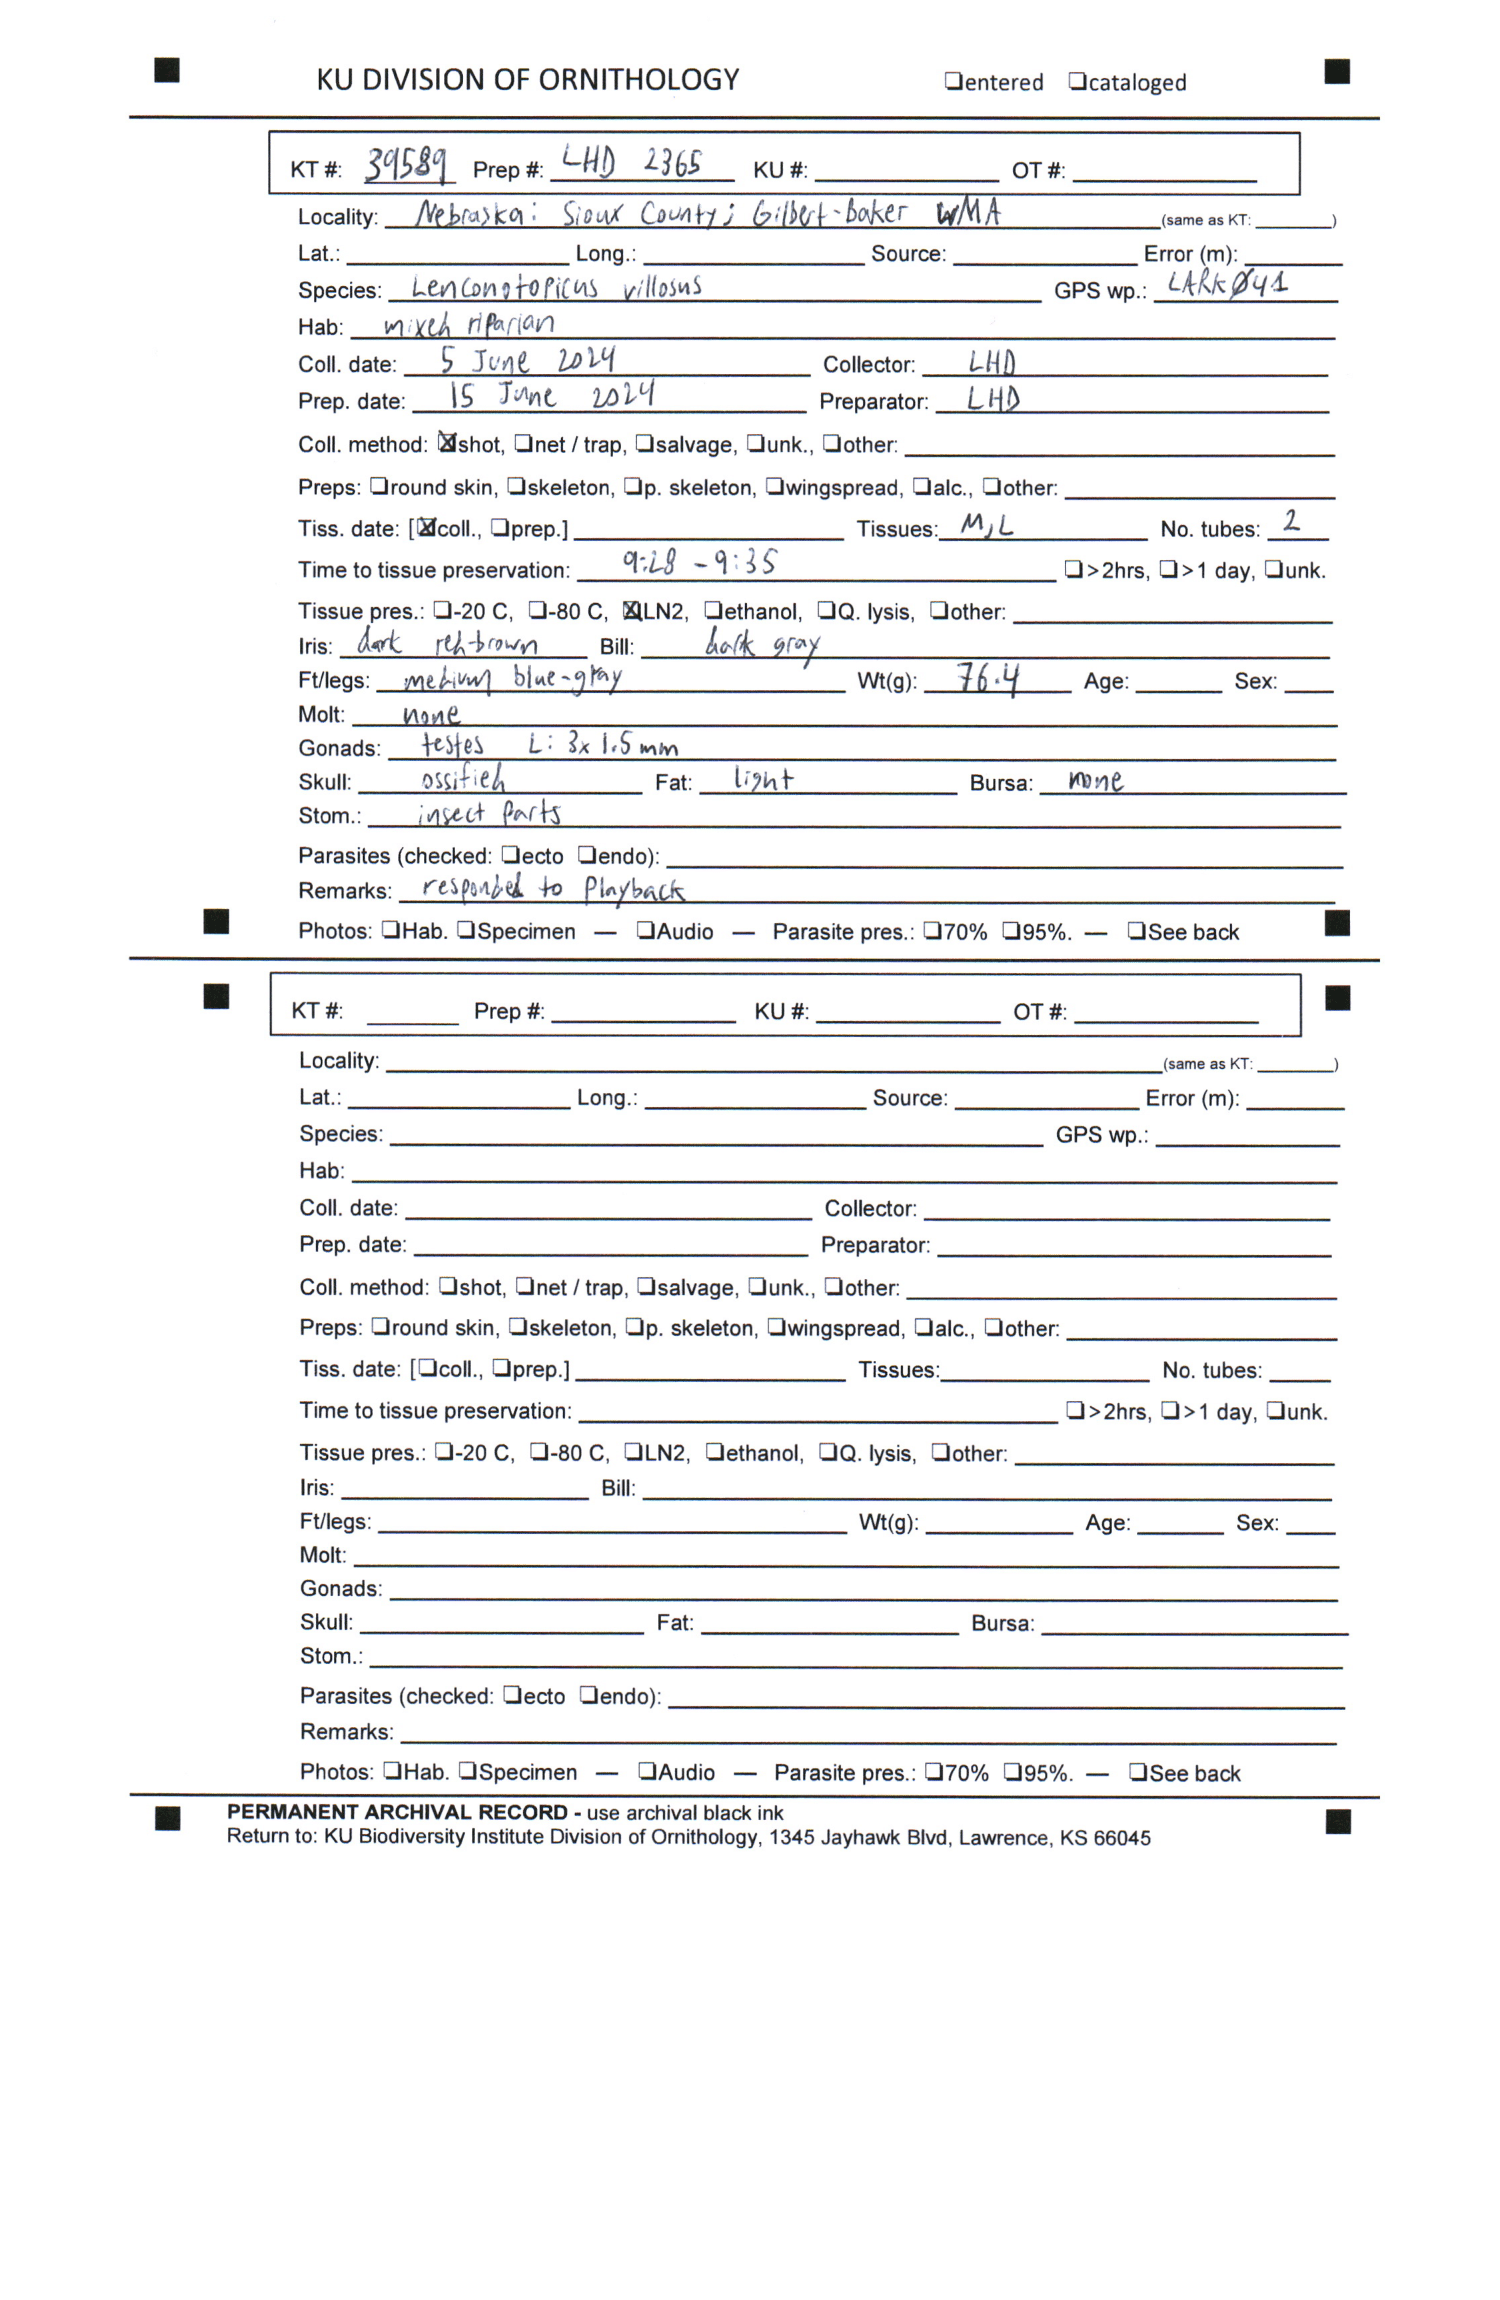 KU DIVISION OF ORNITHOLOGY ❑entered ❑cataloged
KT #: 39589 Prep #: LHD 2365 KU #: ________ OT #: ________
Locality: Nebraska: Sioux County; Gilbert-Baker WMA (same as KT: ________)
Lat.: ________ Long.: ________ Source: ________ Error (m): ________
Species: Lenconotopicus villosus GPS wp.: LARKØ41
Hab: mixed riparian
Coll. date: 5 June 2024 Collector: LHD
Prep. date: 15 June 2024 Preparator: LHD
Coll. method: ☒shot, ❑net / trap, ❑salvage, ❑unk., ❑other: ________
Preps: ❑round skin, ❑skeleton, ❑p. skeleton, ❑wingspread, ❑alc., ❑other: ________
Tiss. date: [☒coll., ❑prep.] ________ Tissues: M,L No. tubes: 2
Time to tissue preservation: 9:28 - 9:35 ❑>2hrs, ❑>1 day, ❑unk.
Tissue pres.: ❑-20 C, ❑-80 C, ☒LN2, ❑ethanol, ❑Q. lysis, ❑other: ________
Iris: dark red-brown Bill: dark gray
Ft/legs: medium blue-gray Wt(g): 76.4 Age: ________ Sex: ____
Molt: none
Gonads: testes L: 3x1.5mm
Skull: ossified Fat: light Bursa: none
Stom.: insect parts
Parasites (checked: ❑ecto ❑endo): ________
Remarks: responded to Playback
Photos: ❑Hab. ❑Specimen — ❑Audio — Parasite pres.: ❑70% ❑95%. — ❑See back
KT #: ________ Prep #: ________ KU #: ________ OT #: ________
Locality: ________ (same as KT: ________)
Lat.: ________ Long.: ________ Source: ________ Error (m): ________
Species: ________ GPS wp.: ________
Hab: ________
Coll. date: ________ Collector: ________
Prep. date: ________ Preparator: ________
Coll. method: ❑shot, ❑net / trap, ❑salvage, ❑unk., ❑other: ________
Preps: ❑round skin, ❑skeleton, ❑p. skeleton, ❑wingspread, ❑alc., ❑other: ________
Tiss. date: [❑coll., ❑prep.] ________ Tissues: ________ No. tubes: ____
Time to tissue preservation: ________ ❑>2hrs, ❑>1 day, ❑unk.
Tissue pres.: ❑-20 C, ❑-80 C, ❑LN2, ❑ethanol, ❑Q. lysis, ❑other: ________
Iris: ________ Bill: ________
Ft/legs: ________ Wt(g): ________ Age: ________ Sex: ____
Molt: ________
Gonads: ________
Skull: ________ Fat: ________ Bursa: ________
Stom.: ________
Parasites (checked: ❑ecto ❑endo): ________
Remarks: ________
Photos: ❑Hab. ❑Specimen — ❑Audio — Parasite pres.: ❑70% ❑95%. — ❑See back
PERMANENT ARCHIVAL RECORD - use archival black ink
Return to: KU Biodiversity Institute Division of Ornithology, 1345 Jayhawk Blvd, Lawrence, KS 66045